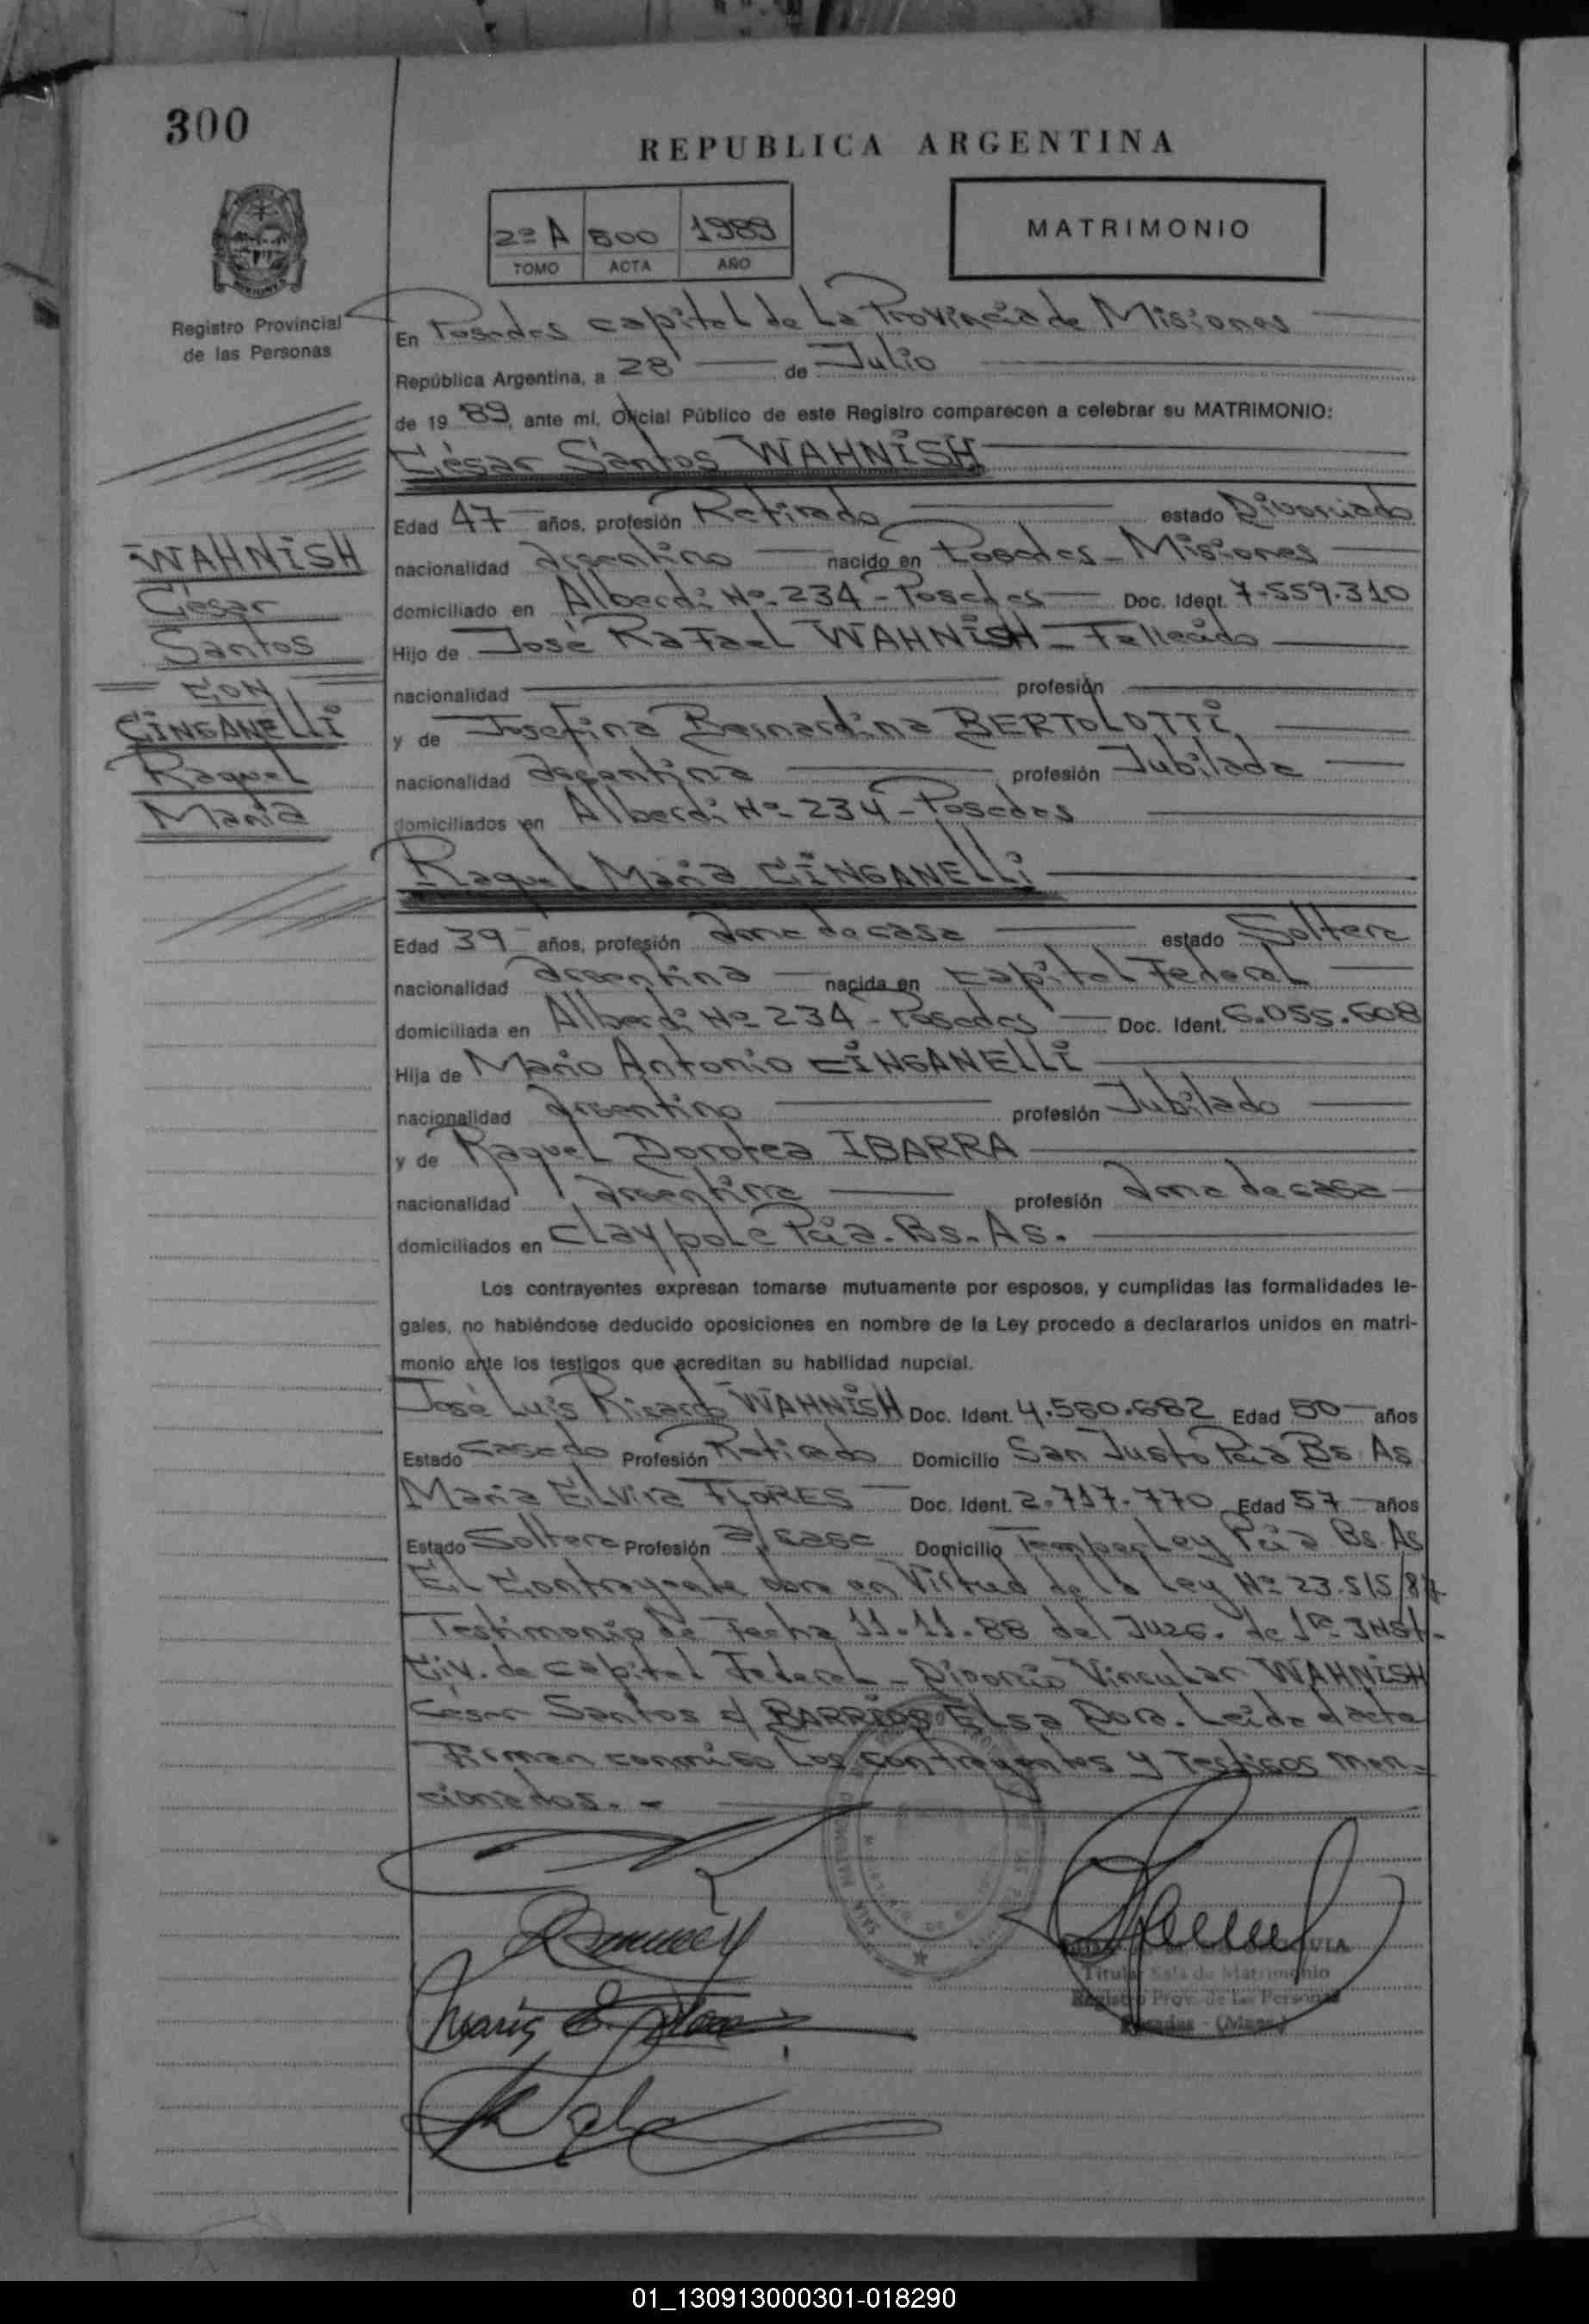 300
REPUBLICA ARGENTINA
2º A 500 1989
TOMO ACTA AÑO
MATRIMONIO
Registro Provincial
de las Personas
En Posadas capital de La Provincia de Misiones
República Argentina, a 28 de Julio
de 19 89, ante mí, Oficial Público de este Registro comparecen a celebrar su MATRIMONIO:
César Santos WAHNISH
Edad 47 años, profesión Retirado estado Divorciado
nacionalidad argentino nacido en Posadas - Misiones
domiciliado en Alberdi Nº 234 - Posadas Doc. Ident. 7.559.310
Hijo de José Rafael WAHNISH - Fallecido
nacionalidad profesión
y de Josefina Bernardina BERTOLOTTI
nacionalidad argentina profesión Jubilada
domiciliados en Alberdi Nº 234 - Posadas
WAHNISH
César
Santos
CON
CINGANELLI
Raquel
María
Raquel María CINGANELLI
Edad 39 años, profesión ama de casa estado Soltera
nacionalidad argentina nacida en Capital Federal
domiciliada en Alberdi Nº 234 - Posadas Doc. Ident. 6.055.608
Hija de Mario Antonio CINGANELLI
nacionalidad argentino profesión Jubilado
y de Raquel Dorotea IBARRA
nacionalidad argentina profesión ama de casa
domiciliados en Claypole Pcia. Bs. As.
Los contrayentes expresan tomarse mutuamente por esposos, y cumplidas las formalidades le-
gales, no habiéndose deducido oposiciones en nombre de la Ley procedo a declararlos unidos en matri-
monio ante los testigos que acreditan su habilidad nupcial.
José Luis Ricardo WAHNISH Doc. Ident. 4.580.682 Edad 50 años
Estado Casado Profesión Retirado Domicilio San Justo Pcia Bs As
María Elvira FLORES Doc. Ident. 2.717.770 Edad 57 años
Estado Soltera Profesión a/casa Domicilio Temperley Pcia Bs. As
El Contrayente obra en Virtud de la Ley Nº 23.515/87
Testimonio de Fecha 11.11.88 del Juzg. de 1ra INSt.
Civ. de Capital Federal - Divorcio Vincular WAHNISH
César Santos c/ BARRIOS Elsa Dora. Leida el acta
Firman conmigo los contrayentes y Testigos men-
cionados. -
Titular Sala de Matrimonio
Registro Prov. de Las Personas
Posadas - (Mnes.)
01_130913000301-018290